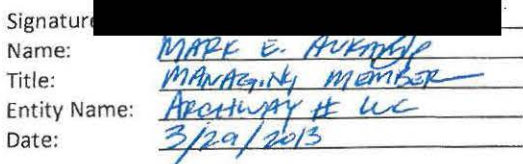 Signature
Name: MARK E.
Title: MANAGING MEMBER
Entity Name: ARCHWAY II LLC
Date: 3/29/2013